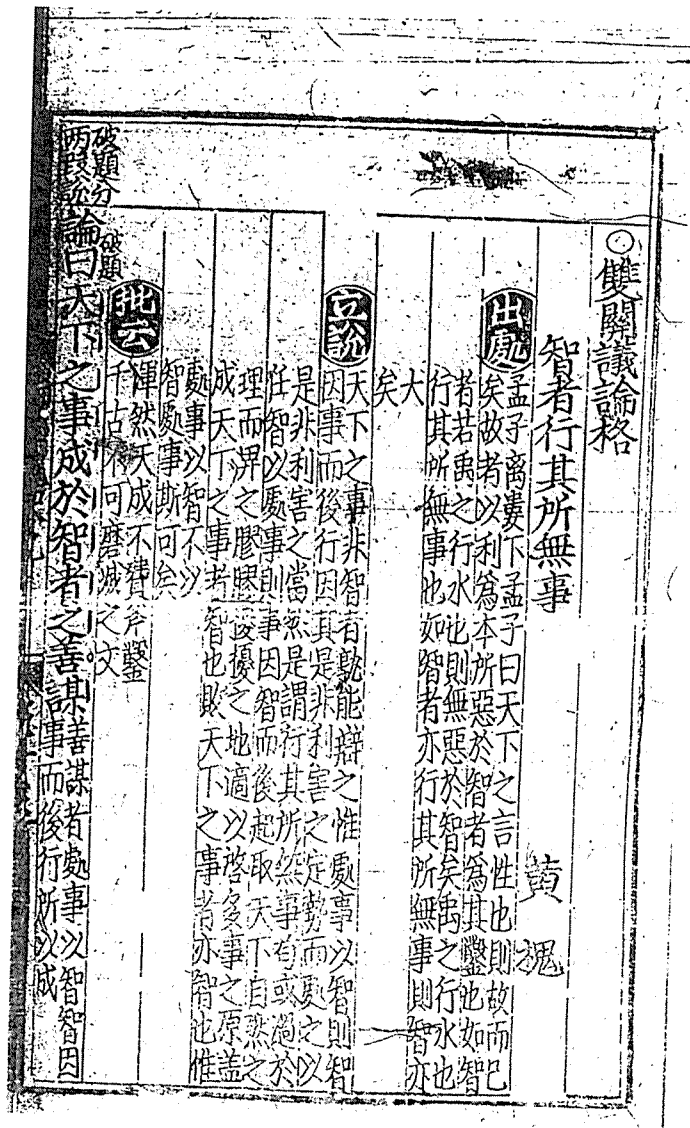 ○雙關議論格
智者行其所無事
黄槐
出處
孟子离婁下孟子曰天下之言性也則故而已
矣故者以利爲本所惡於智者爲其鑿也如智
者若禹之行水也則無惡於智矣禹之行水也
行其所無事也如智者亦行其所無事則智亦
大
矣
立說
天下之事非智者孰能辯之惟處事以智則智
因事而後行因其是非利害之定勢而處之以
是非利害之當然是謂行其所然事有或過於
任智以處事則事因智而後起取天下自然之
理而汨之膠膠擾擾之地適以啓多事之原盖
成天下之事者智也敗天下之事者亦智也惟
處事以智不以
智處事斯可矣
批云
渾然天成不費斧鑿
千古不可磨滅之文
破題分
兩段說
破題
論曰天下之事成於智者之善謀
善謀者處事以智智因
事而後行所以成